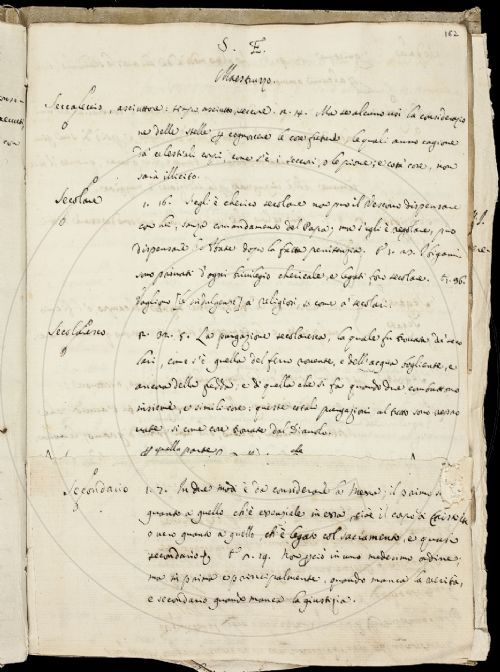 182
S. E.
Maestruzzo.
Seccaliccio, asciuttore: tempo asciutto, seccore. 2. 14. Ma se alcuno usi la considerazio
ne delle stelle cognoscere le cose future, le quali anno cagione
da' celestiali corpi, come s'è i seccori, o le piove, e cotai cose, non
sarà illecito.
Secolare 1. 16. S'egli è cherico secolare non può il Vescovo dispensare
con lui, senza comandamento del Papa; ma s'egli è regolare, può
dispensare l'Abate dopo la fatta penitenzia.
sono privati d'ogni privilegio chericale, e legati foro secolare.
vagliono [le indulgenze] a' religiosi, come a' secolari.
Secolaresco 2. 32. 5. La purgazione secolaresca, la quale fu trovata da' seco
lari, come s'è quella del ferro rovente, e dell'acqua bogliente, e
ancora della fredda, e di quella che si fa quando due combattono
insieme, e simili cose: queste cotali purgazioni al tutto sono
vate, sì come cose trovate dal Diavolo.
quella parte
Secondario 1. 7. In due modi è da considerare la Messa; il primo
quanto a quello ch'è essenziale in essa, cioè il capo di Cristo
o vero quanto a quello, ch'è legato col sacramento, e quasi
secondario. 19. Non però in uno medesimo ordine;
ma in prima e principalmente, quando manca la verità,
e secondario quando manca la giustizia.